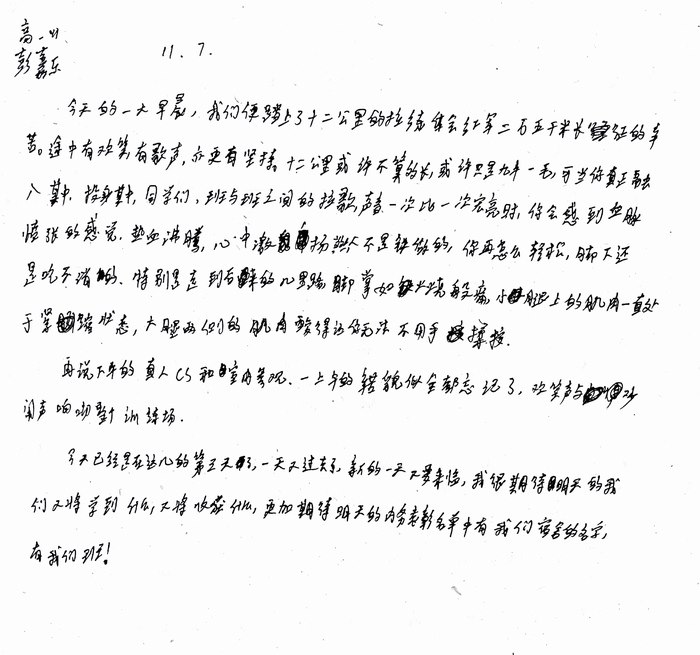 高一
彭嘉乐
11.7.
今天的一大早晨，我们便踏上了十二公里的拉练体会红军二万五千米长征的辛
苦。途中有欢笑有歌声，亦更有坚持。十二公里或许不算的长，或许只是九牛一毛，可当你真正融
入其中，投身其中，同学们，班与班之间的拉歌声音一次比一次宏亮时，你会感到血脉
愤张的感觉。热血沸腾，心中激扬 人不是铁做的，你再怎么轻松，脚下还
是吃不消的。特别是走到后来的几里路，脚掌如火烧般痛，小腿上的肌肉一直处
于紧缩状态，大腿两侧的肌肉酸得让你无法不用手揉按。
再说下午的真人CS和室内 。一上午的疲 似全都忘记了，欢笑声与
闹声响彻整个训练场。
今天已经是在这儿的第五天了，一天又过去了，新的一天又要来临，我很期待明天的我
们又将学到什么，又将收获什么，更加期待明天的内务表彰名单中有我们宿舍的名字，
有我们班！